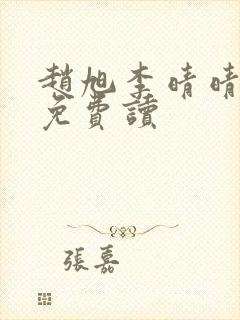 趙旭李晴晴
免費讀
張嘉